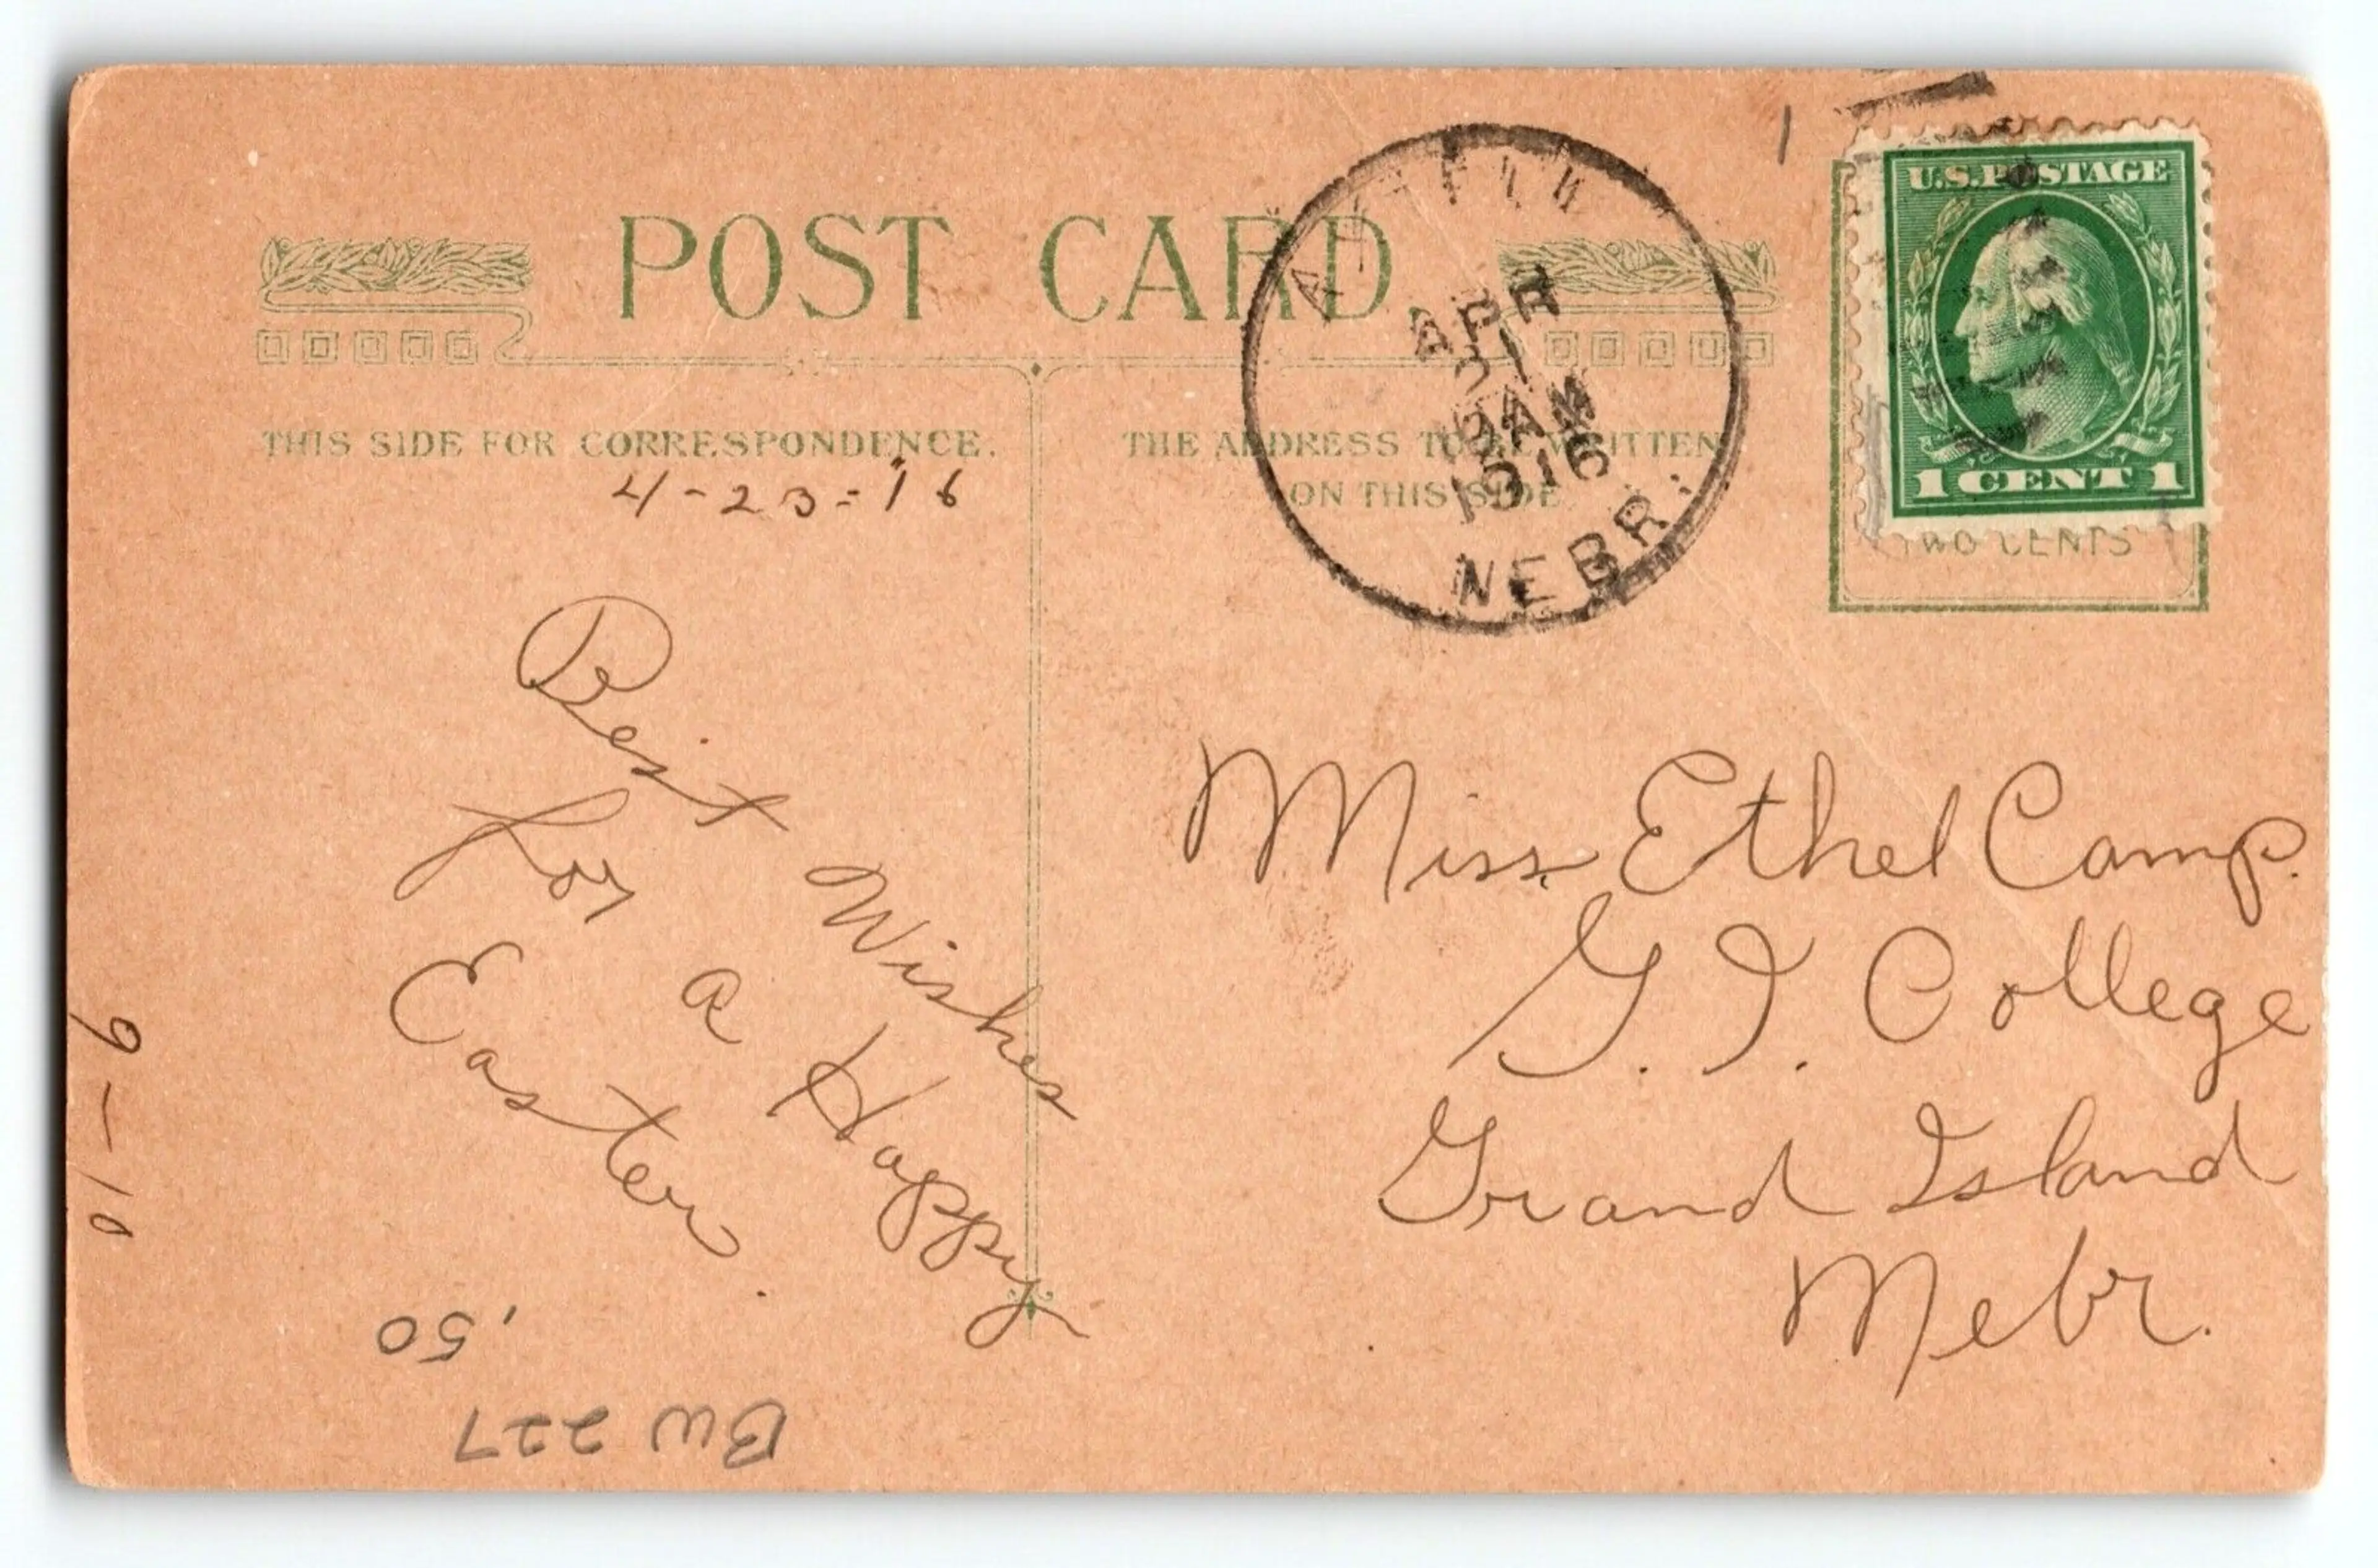 POST CARD.
THIS SIDE FOR CORRESPONDENCE.
4-23-16
Best Wishes
for a Happy
Easter.
9-10
.50
BW 227
THE ADDRESS TO BE WRITTEN
ON THIS SIDE
APR
21
AM
1916
NEBR.
U.S. POSTAGE
1 CENT 1
TWO CENTS
Miss. Ethel Camp.
G. I. College
Grand Island
Nebr.